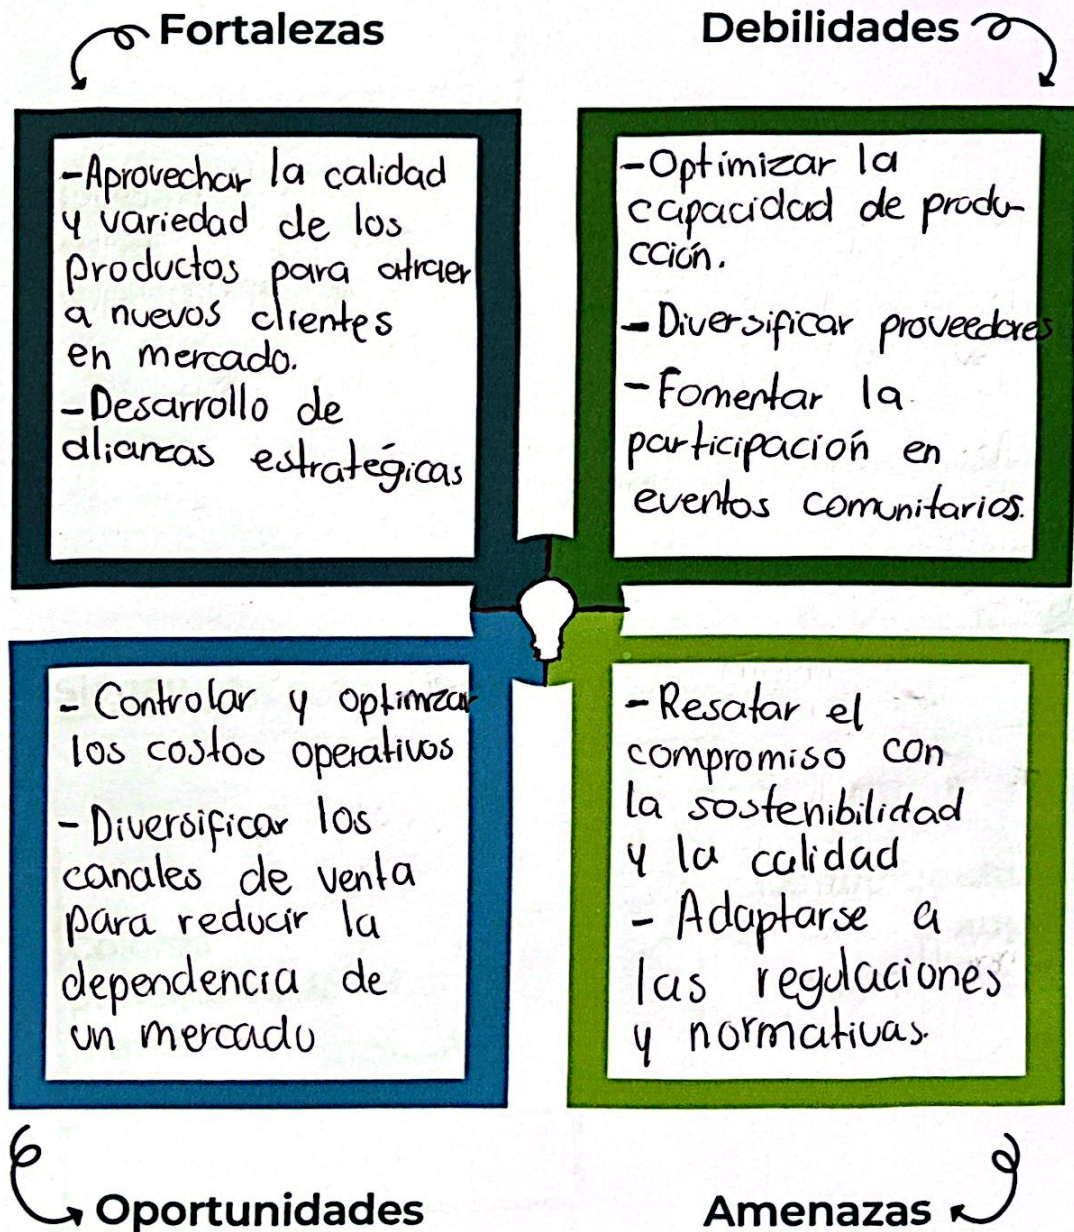 Fortalezas
-Aprovechar la calidad
y variedad de los
productos para atraer
a nuevos clientes
en mercado.
-Desarrollo de
alianzas estratégicas
Debilidades
-Optimizar la
capacidad de produ-
cción.
-Diversificar proveedores
-Fomentar la
participación en
eventos comunitarios.
- Controlar y optimizar
los costos operativos
- Diversificar los
canales de venta
para reducir la
dependencia de
un mercado
Oportunidades
-Resatar el
compromiso con
la sostenibilidad
y la calidad
- Adaptarse a
las regulaciones
y normativas.
Amenazas